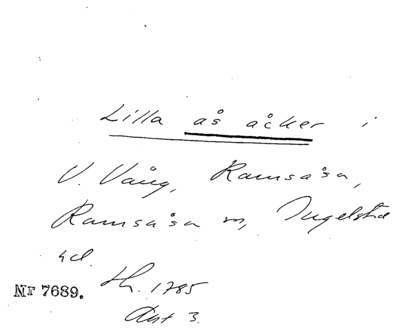 Lilla ås åker i
V. Vång, Ramsåsa,
Ramsåsa sn, Ingelstad
hd.
Nr 7689. th. 1785
Akt 3.